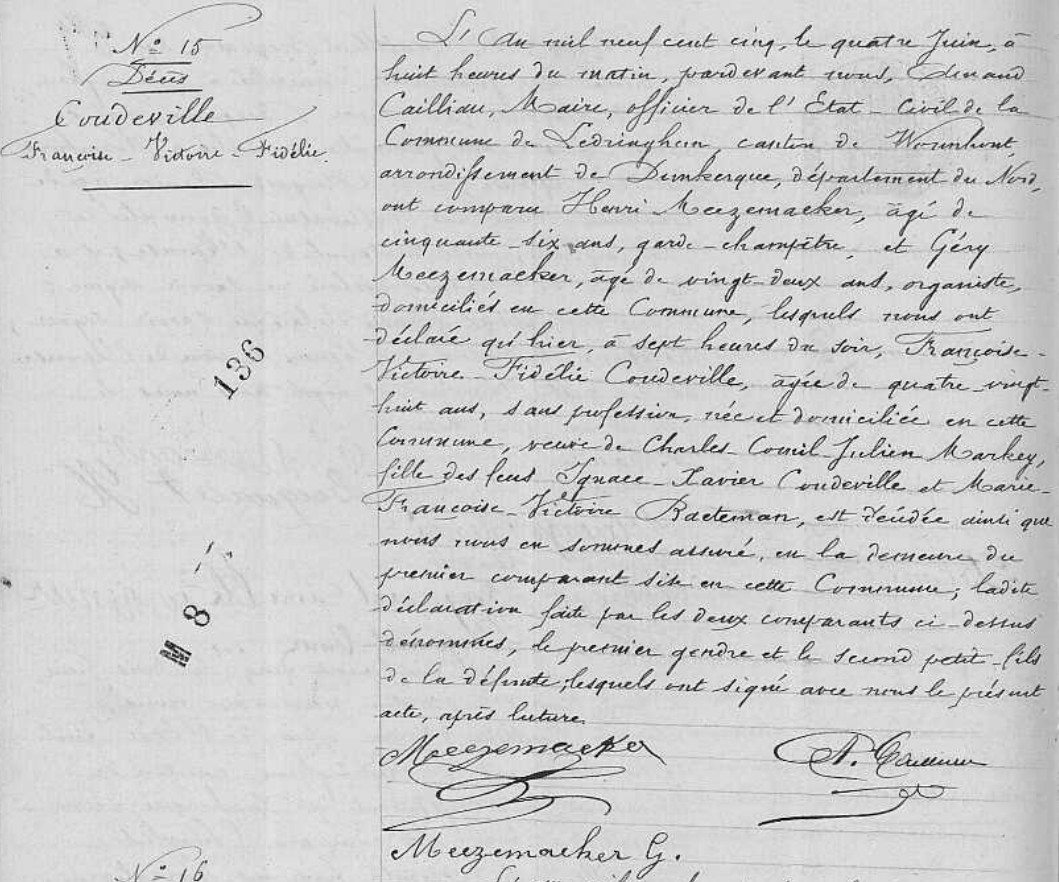 N° 15
Décès
Coudeville
Françoise - Victoire - Fidélie.
136
8
L'An mil neuf cent cinq, le quatre Juin, à
huit heures du matin, pardevant nous, Amand
Cailliau, Maire, officier de l'Etat-Civil de la
Commune de Ledringhem, canton de Wormhout,
arrondissement de Dunkerque, département du Nord,
ont comparu Henri Meezemaecker, âgé de
cinquante-six ans, garde-champêtre, et Géry
Meezemaecker, âgé de vingt-deux ans, organiste,
domiciliés en cette Commune, lesquels nous ont
déclaré qu'hier, à sept heures du soir, Françoise-
Victoire-Fidélie Coudeville, âgée de quatre-vingt-
huit ans, sans profession, née et domiciliée en cette
Commune, veuve de Charles-Cornil Julien Markey,
fille des feus Ignace-Xavier Coudeville et Marie-
Françoise-Victoire Baeteman, est décédée ainsi que
nous nous en sommes assuré, en la demeure du
premier comparant sise en cette Commune; ladite
déclaration faite par les deux comparants ci-dessus
dénommés, le premier gendre et le second petit-fils
de la défunte, lesquels ont signé avec nous le présent
acte, après lecture.
Meezemaecker
A. Cailliau
Meezemaecker G.
N° 16